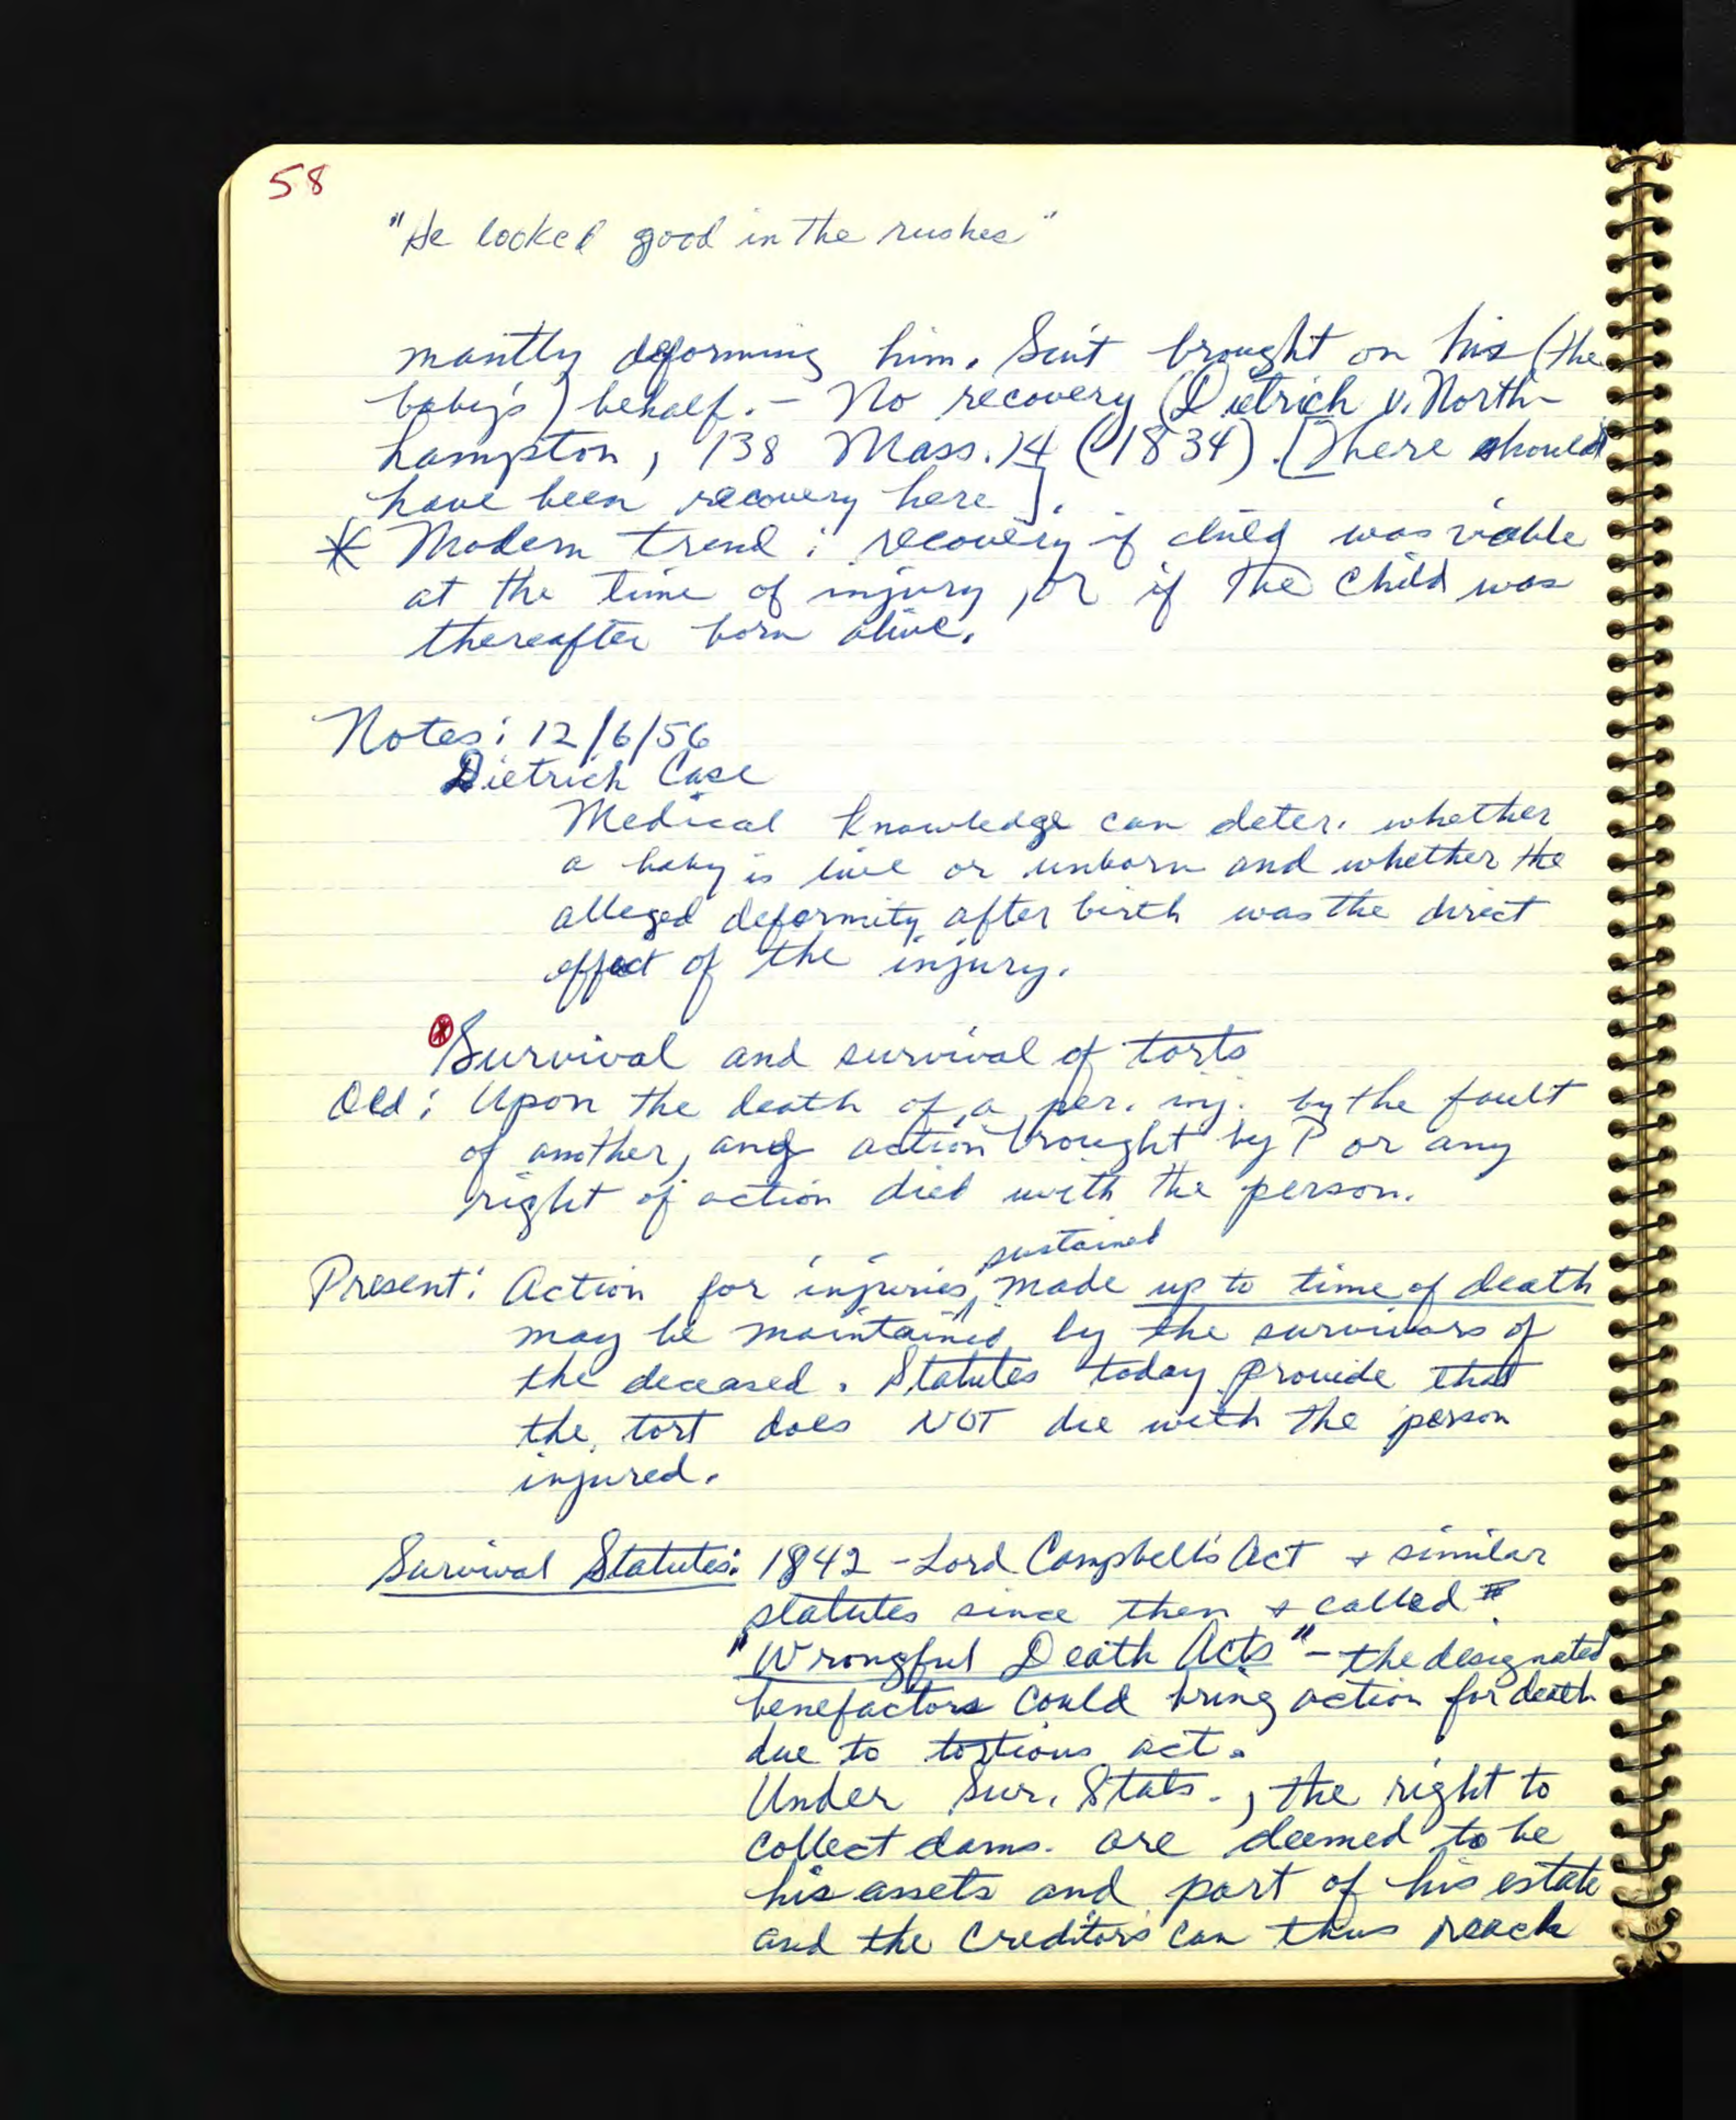 58
"He looked good in the rushes"
mantly deforming him. Suit brought on his (the
baby's) behalf. - No recovery (Dietrich v. North-
hampton, 138 Mass. 14 (1834). [There should
have been recovery here].
* Modern trend: recovery if child was viable
at the time of injury, or if the child was
thereafter born alive.
Notes: 12/6/56
Dietrich Case
Medical knowledge can deter. whether
a baby is live or unborn and whether the
alleged deformity after birth was the direct
effect of the injury.
* Survival and survival of torts
Old: Upon the death of a per. inj. by the fault
of another, any action brought by P or any
right of action died with the person.
sustained
Present: Action for injuries, made up to time of death
may be maintained by the survivors of
the deceased. Statutes today provide that
the tort does NOT die with the person
injured.
Survival Statutes: 1842 - Lord Campbell's Act + similar
statutes since then + called
"Wrongful Death Acts" - the designated
benefactors could bring action for death
due to tortious act.
Under Sur. Stats., the right to
collect dams. are deemed to be
his assets and part of his estate
and the creditors can thus reach